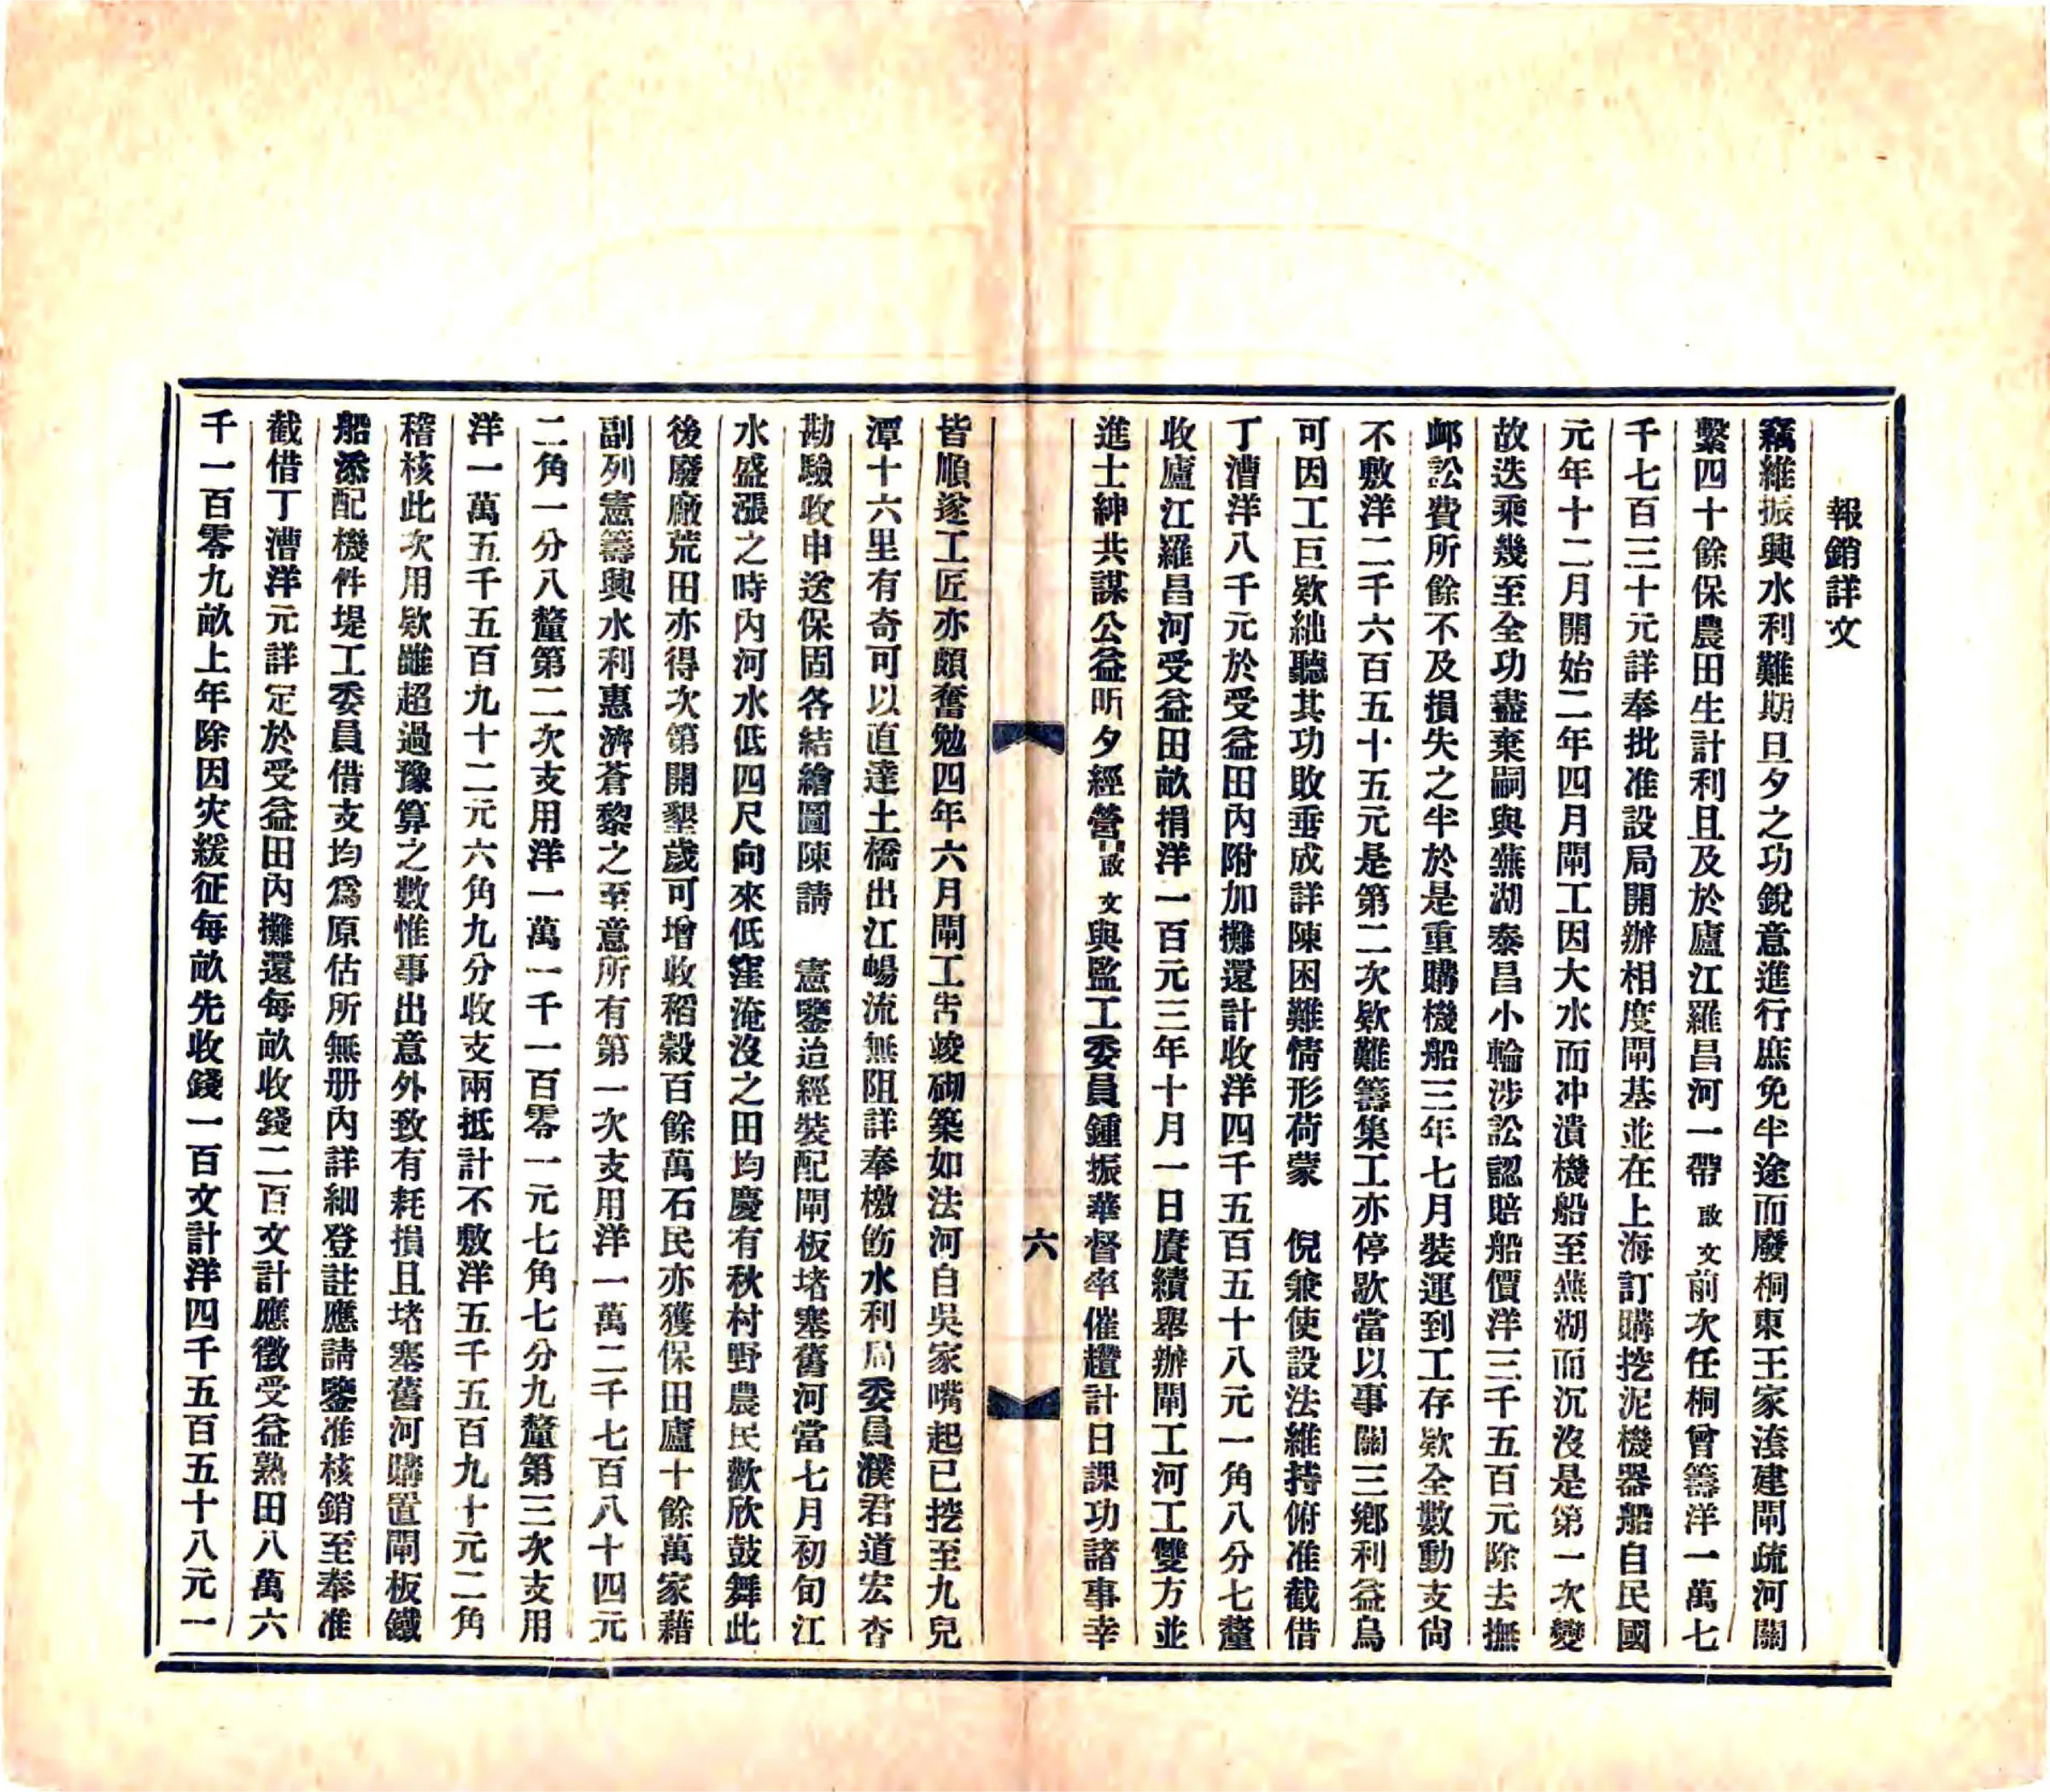 報銷詳文
竊維振興水利難期旦夕之功銳意進行庶免半途而廢桐東王家滧建閘疏河關
繫四十餘保農田生計利且及於廬江羅昌河一帶啟文前次任桐曾籌洋一萬七
千七百三十元詳奉批准設局開辦相度閘基並在上海訂購挖泥機器船自民國
元年十二月開始二年四月閘工因大水而冲潰機船至蕪湖而沉沒是第一次變
故迭乘幾至全功盡棄嗣與蕪湖泰昌小輪涉訟認賠船價洋三千五百元除去撫
䘏訟費所餘不及損失之半於是重購機船三年七月裝運到工存欵全數動支尙
不敷洋二千六百五十五元是第二次欵難籌集工亦停歇當以事關三鄕利益烏
可因工巨欵絀聽其功敗垂成詳陳困難情形荷蒙　倪兼使設法維持俯准截借
丁漕洋八千元於受益田內附加攤還計收洋四千五百五十八元一角八分七釐
收廬江羅昌河受益田畝捐洋一百元三年十月一日賡續舉辦閘工河工雙方並
進士紳共謀公益昕夕經營啟文與監工委員鍾振華督率催趲計日課功諸事幸
六
皆順遂工匠亦頗奮勉四年六月閘工吿竣砌築如法河自吳家嘴起已挖至九兒
潭十六里有奇可以直達土橋出江暢流無阻詳奉檄飭水利局委員濮君道宏杳
勘驗收申送保固各結繪圖陳請　憲鑒迨經裝配閘板堵塞舊河當七月初旬江
水盛漲之時內河水低四尺向來低窪淹沒之田均慶有秋村野農民歡欣鼓舞此
後廢廠荒田亦得次第開墾歲可增收稻穀百餘萬石民亦獲保田廬十餘萬家藉
副列憲籌興水利惠濟蒼黎之至意所有第一次支用洋一萬二千七百八十四元
二角一分八釐第二次支用洋一萬一千一百零一元七角七分九釐第三次支用
洋一萬五千五百九十二元六角九分收支兩抵計不敷洋五千五百九十元二角
稽核此次用欵雖超過豫算之數惟事出意外致有耗損且堵塞舊河購置閘板鐵
船添配機件堤工委員借支均爲原估所無册內詳細登註應請鑒准核銷至奉准
截借丁漕洋元詳定於受益田內攤還每畝收錢二百文計應徵受益熟田八萬六
千一百零九畝上年除因灾緩征每畝先收錢一百文計洋四千五百五十八元一